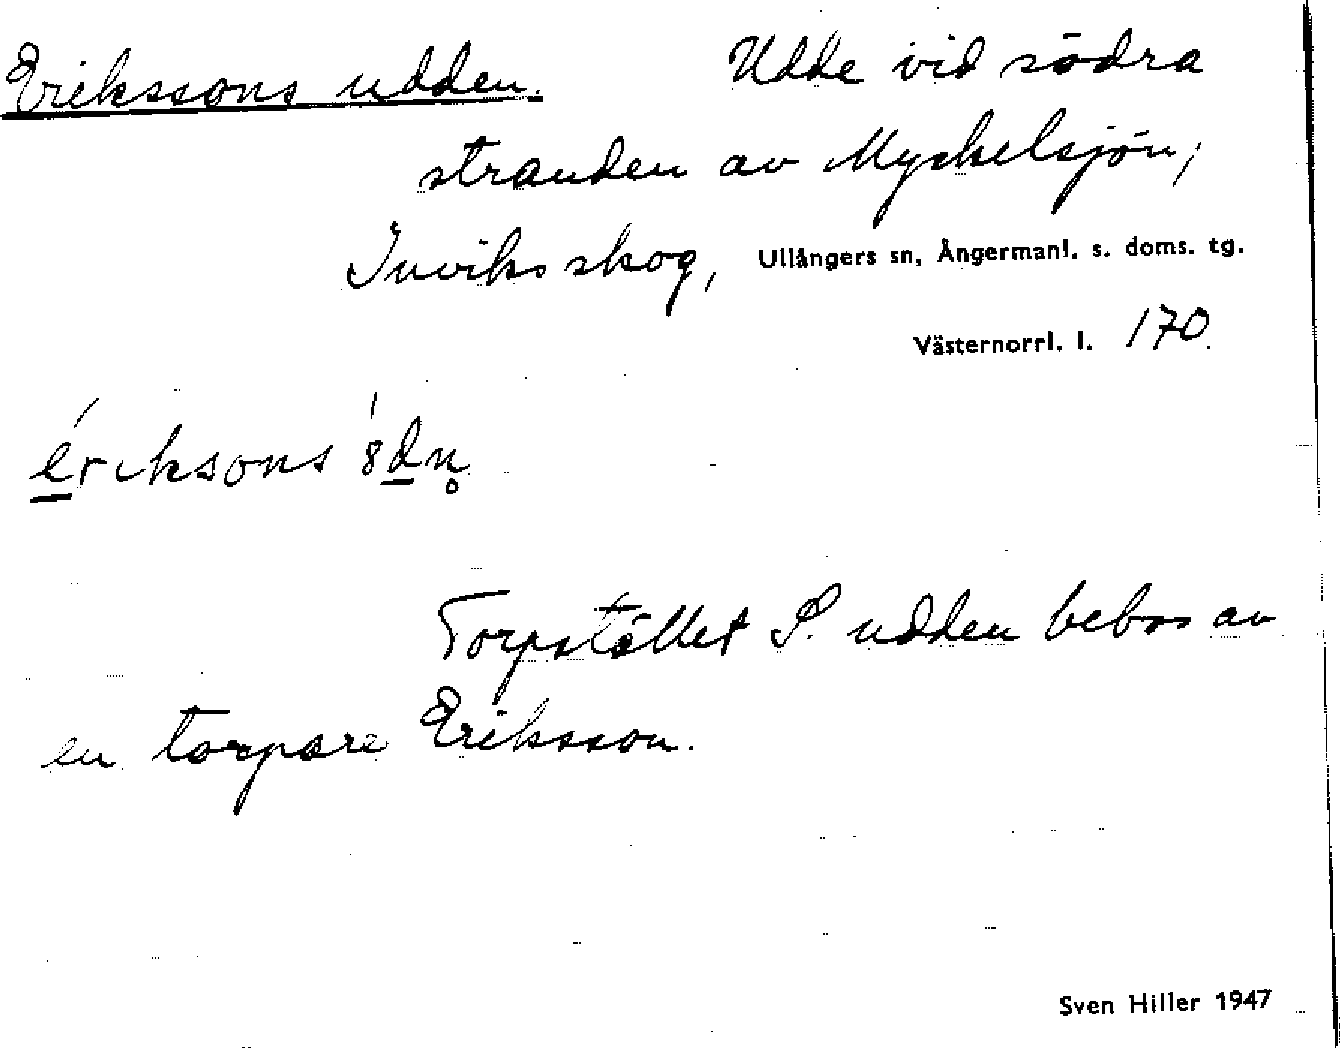 Erikssons udden. Udde vid södra
stranden av Myckelsjön,
Inviksskog, Ullångers sn, Ångermanl. s. doms. tg.
Västernorrl. l. 170.
ériksons
Torpstället S. udden bebos av
en torpare Eriksson.
Sven Hiller 1947